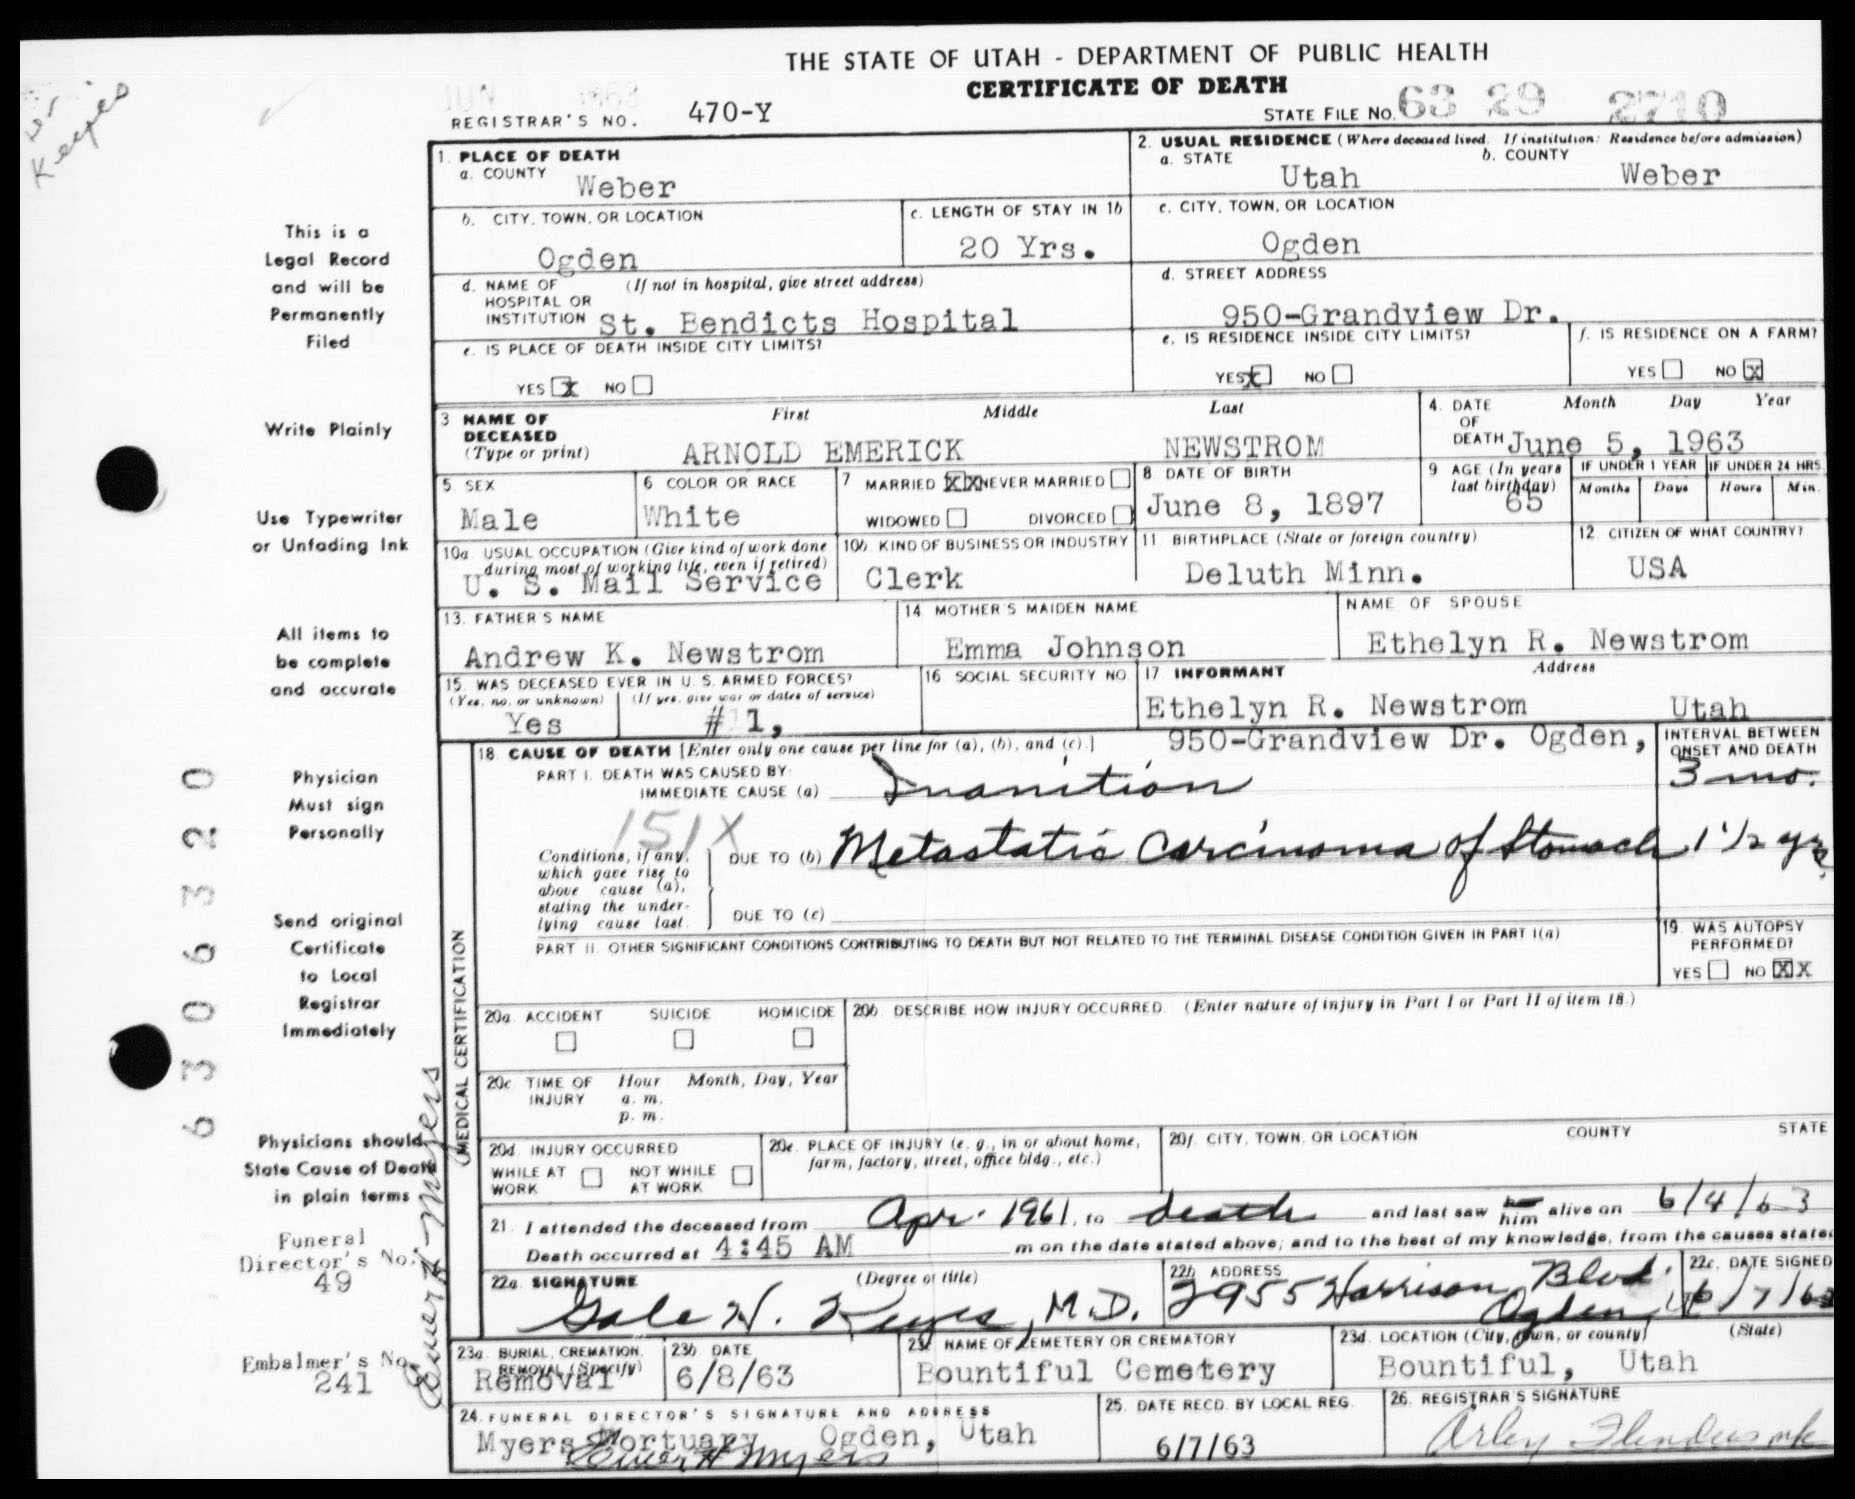 THE STATE OF UTAH - DEPARTMENT OF PUBLIC HEALTH
CERTIFICATE OF DEATH
JUN 1963
REGISTRAR'S NO. 470-Y
STATE FILE NO. 63 29 2710
Keyes
1. PLACE OF DEATH
a. COUNTY Weber
2. USUAL RESIDENCE (Where deceased lived. If institution: Residence before admission)
a. STATE Utah b. COUNTY Weber
b. CITY, TOWN, OR LOCATION Ogden
c. LENGTH OF STAY IN 1b 20 Yrs.
c. CITY, TOWN, OR LOCATION Ogden
d. NAME OF HOSPITAL OR INSTITUTION (If not in hospital, give street address) St. Bendicts Hospital
d. STREET ADDRESS 950-Grandview Dr.
e. IS PLACE OF DEATH INSIDE CITY LIMITS?
YES X NO
e. IS RESIDENCE INSIDE CITY LIMITS?
YES X NO
f. IS RESIDENCE ON A FARM?
YES NO X
3 NAME OF DECEASED (Type or print) First Middle Last
ARNOLD EMERICK NEWSTROM
4. DATE OF DEATH Month Day Year
June 5, 1963
5. SEX Male
6 COLOR OR RACE White
7 MARRIED XX NEVER MARRIED
WIDOWED DIVORCED
8 DATE OF BIRTH June 8, 1897
9 AGE (In years last birthday) 65
IF UNDER 1 YEAR Months Days
IF UNDER 24 HRS. Hours Min.
10a. USUAL OCCUPATION (Give kind of work done during most of working life, even if retired)
U. S. Mail Service
10b. KIND OF BUSINESS OR INDUSTRY Clerk
11 BIRTHPLACE (State or foreign country) Deluth Minn.
12. CITIZEN OF WHAT COUNTRY? USA
13. FATHER'S NAME Andrew K. Newstrom
14 MOTHER'S MAIDEN NAME Emma Johnson
NAME OF SPOUSE Ethelyn R. Newstrom
15. WAS DECEASED EVER IN U. S. ARMED FORCES?
(Yes, no, or unknown) (If yes, give war or dates of service)
Yes # 1,
16 SOCIAL SECURITY NO.
17 INFORMANT Address
Ethelyn R. Newstrom Utah
950-Grandview Dr. Ogden,
18. CAUSE OF DEATH [Enter only one cause per line for (a), (b), and (c).]
INTERVAL BETWEEN ONSET AND DEATH
PART I. DEATH WAS CAUSED BY:
IMMEDIATE CAUSE (a) Inanition 3 mo.
151X
Conditions, if any, which gave rise to above cause (a), stating the underlying cause last.
DUE TO (b) Metastatic Carcinoma of Stomach 1 1/2 yrs
DUE TO (c)
PART II. OTHER SIGNIFICANT CONDITIONS CONTRIBUTING TO DEATH BUT NOT RELATED TO THE TERMINAL DISEASE CONDITION GIVEN IN PART I(a)
19. WAS AUTOPSY PERFORMED?
YES NO XX
MEDICAL CERTIFICATION
20a. ACCIDENT SUICIDE HOMICIDE
20b. DESCRIBE HOW INJURY OCCURRED. (Enter nature of injury in Part I or Part II of item 18.)
20c TIME OF INJURY Hour Month, Day, Year
a. m.
p. m.
20d. INJURY OCCURRED
WHILE AT WORK NOT WHILE AT WORK
20e. PLACE OF INJURY (e. g., in or about home, farm, factory, street, office bldg., etc.)
20f. CITY, TOWN, OR LOCATION COUNTY STATE
21. I attended the deceased from Apr. 1961, to death and last saw him alive on 6/4/63
Death occurred at 4:45 AM m on the date stated above; and to the best of my knowledge, from the causes stated
22a. SIGNATURE (Degree or title)
Gale H. Keyes, M.D.
22b ADDRESS 2955 Harrison Blvd. Ogden,
22c. DATE SIGNED 6/7/63
23a. BURIAL, CREMATION, REMOVAL (Specify) Removal
23b DATE 6/8/63
23c NAME OF CEMETERY OR CREMATORY Bountiful Cemetery
23d. LOCATION (City, town, or county) (State)
Bountiful, Utah
24. FUNERAL DIRECTOR'S SIGNATURE AND ADDRESS
Myers Mortuary Ogden, Utah
Elmer H Myers
25. DATE RECD. BY LOCAL REG. 6/7/63
26. REGISTRAR'S SIGNATURE
Arley
This is a
Legal Record
and will be
Permanently
Filed
Write Plainly
Use Typewriter
or Unfading Ink
All items to
be complete
and accurate
Physician
Must sign
Personally
Send original
Certificate
to Local
Registrar
Immediately
Physicians should
State Cause of Death
in plain terms
Funeral
Director's No.
49
Embalmer's No.
241
Elmer H Myers
6 3 0 6 3 2 0